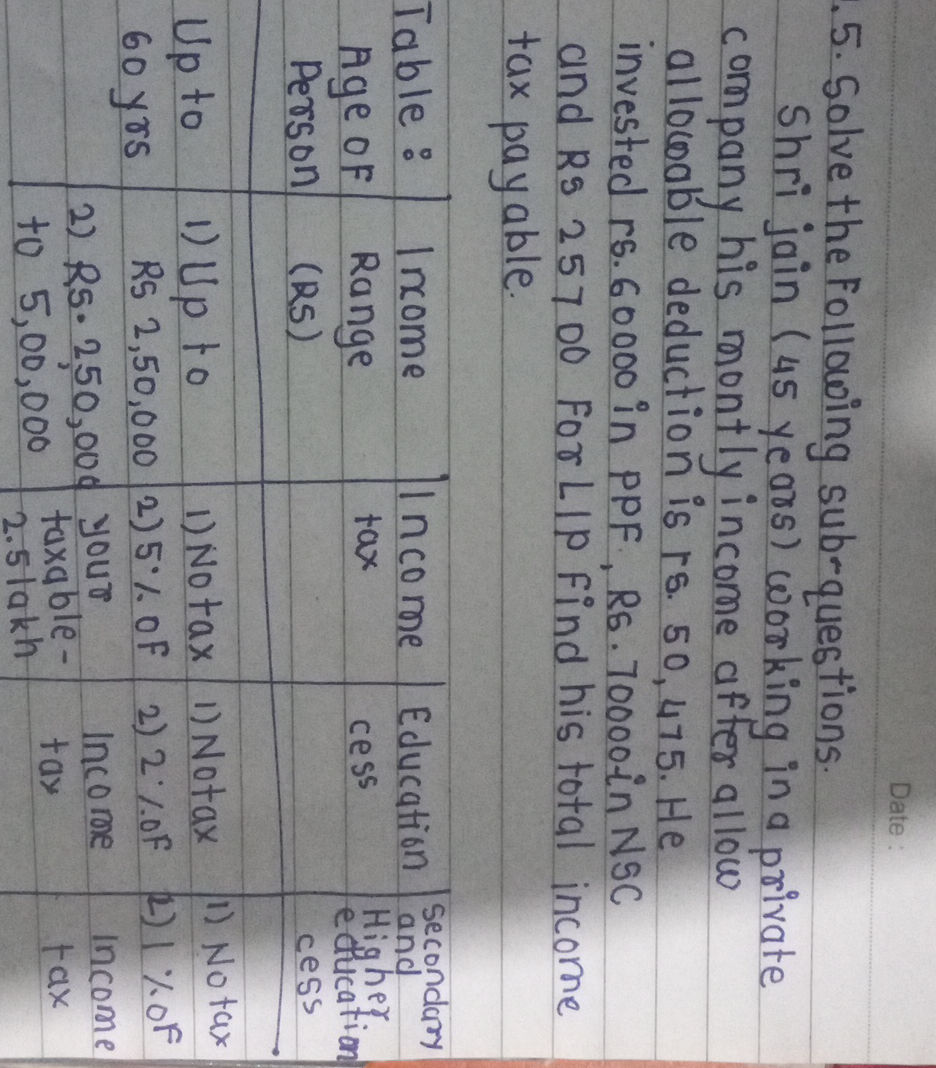 Date :
.5. Solve the Following sub-questions.
Shri jain (45 years) working in a private
company his montly income after allow
allowable deduction is rs. 50,475. He
invested rs.60000 in PPF, Rs.70000 in NSC
and Rs 25700 For LIP find his total income
tax payable.
Table :
Age of Person
Income Range (RS)
Income tax
Education cess
Secondary and Higher education cess
Up to 60 yrs
1) Up to Rs 2,50,000
1) No tax
1) No tax
1) No tax
2) Rs. 2,50,000 to 5,00,000
2) 5% of your taxable - 2.5 lakh
2) 2% of Income tax
2) 1% of Income tax